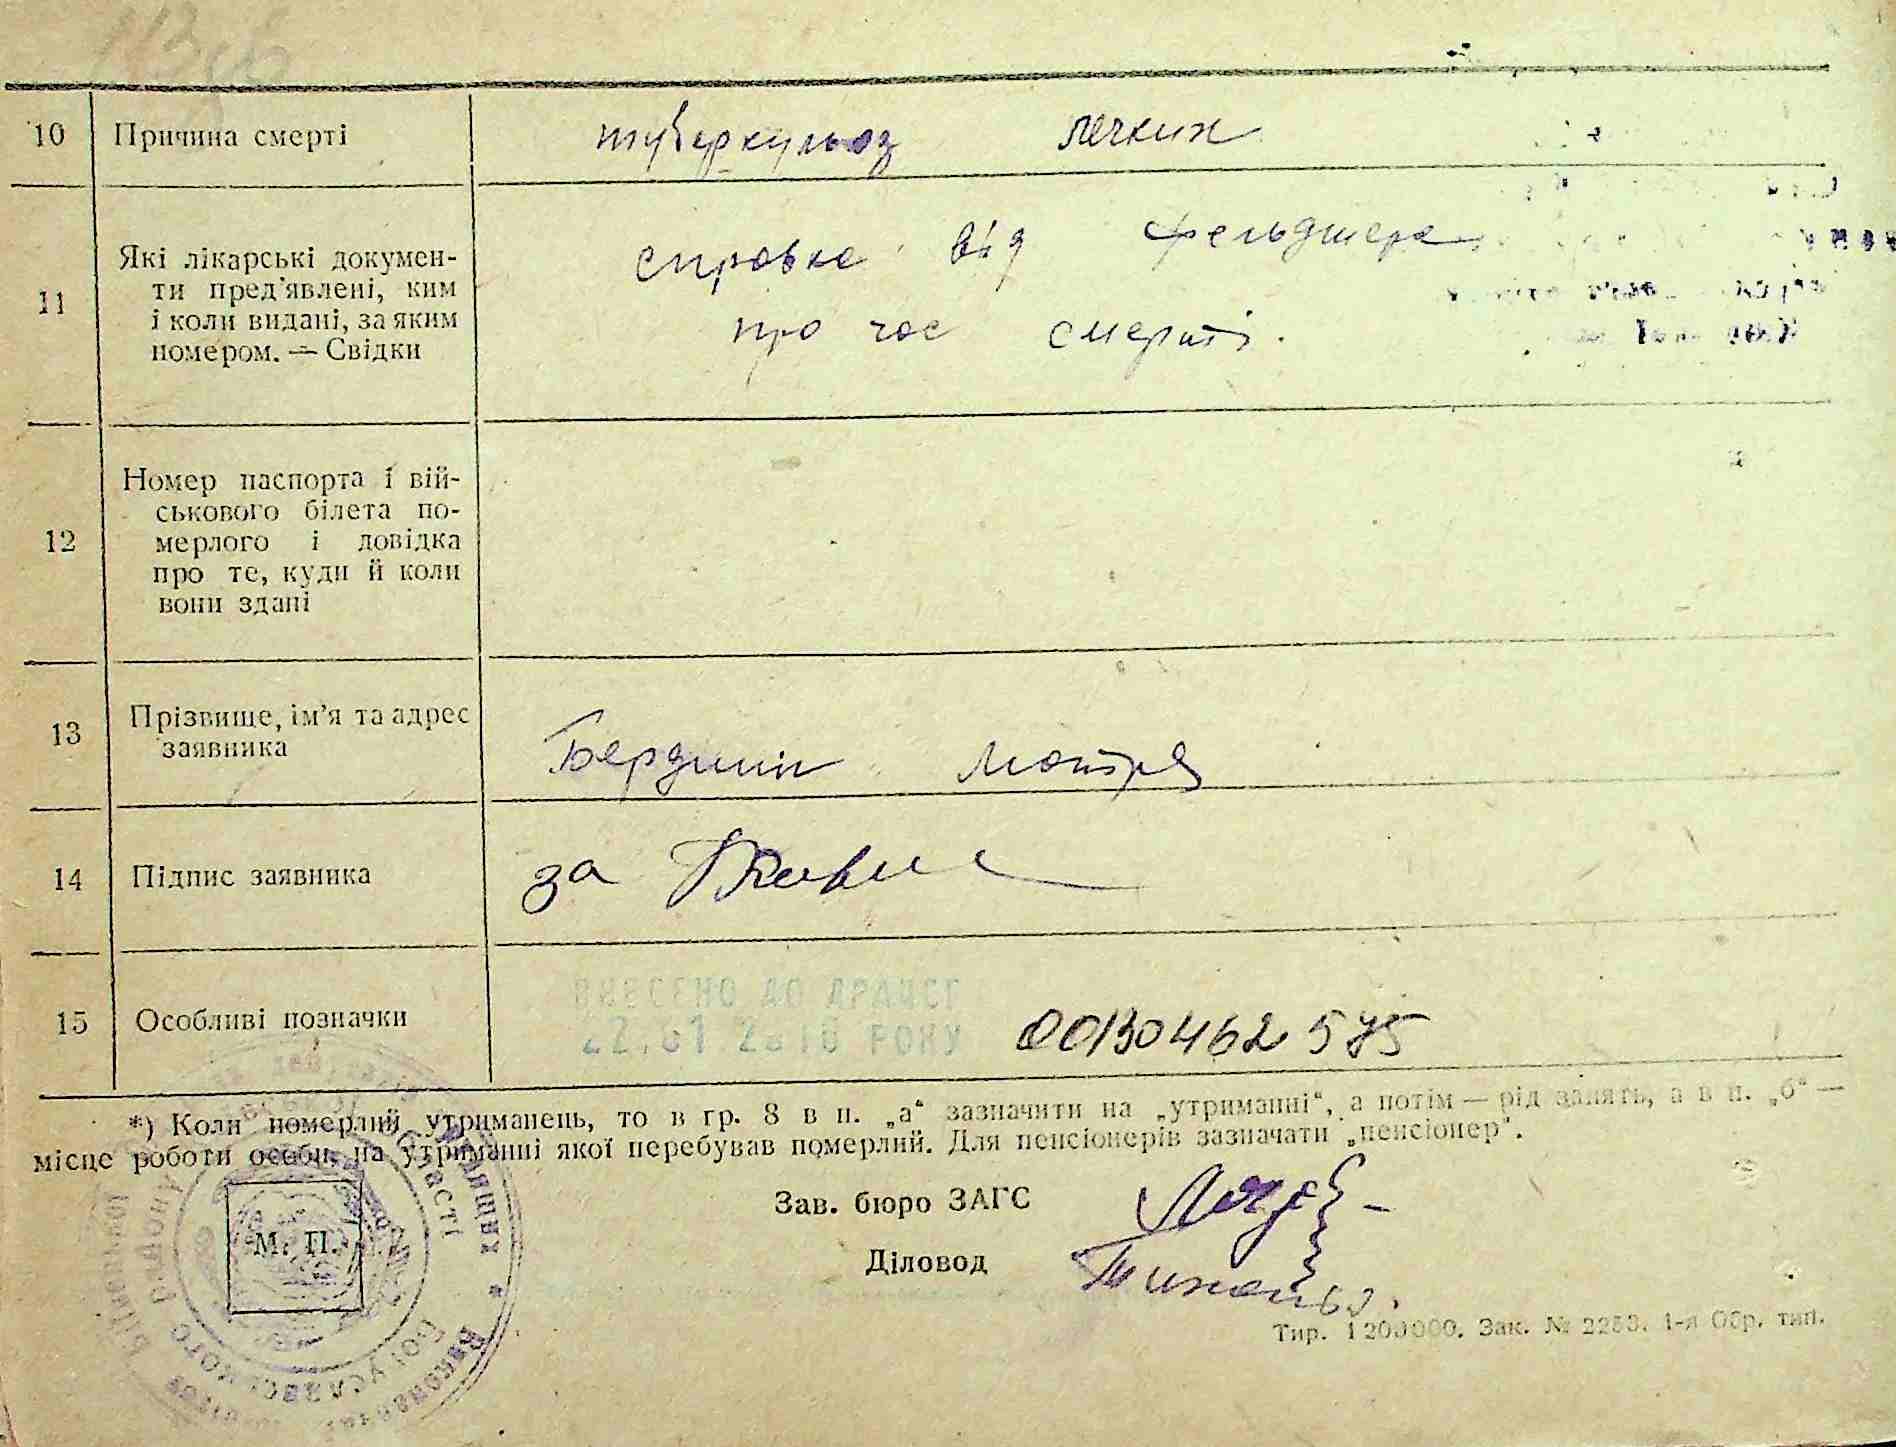 10 Причина смерті туберкульоз легких
11 Які лікарські докумен-
ти пред'явлені, ким
і коли видані, за яким
номером. — Свідки
справка від фельдшера
про час смерті.
12 Номер паспорта і вій-
ськового білета по-
мерлого і довідка
про те, куди й коли
вони здані
13 Прізвище, ім'я та адрес
заявника
Бердник Мотря
14 Підпис заявника за
15 Особливі позначки
ВНЕСЕНО ДО ДРАЦСГ
22.01.2016 РОКУ
00130462575
*) Коли померлий утриманець, то в гр. 8 в п. „а“ зазначити на „утриманні“, а потім — рід занять, а в п. „б“ —
місце роботи особи, на утриманні якої перебував померлий. Для пенсіонерів зазначати „пенсіонер“.
Зав. бюро ЗАГС
М. П.
Діловод
Тир. 1200000. Зак. № 2253. 1-я Обр. тип.